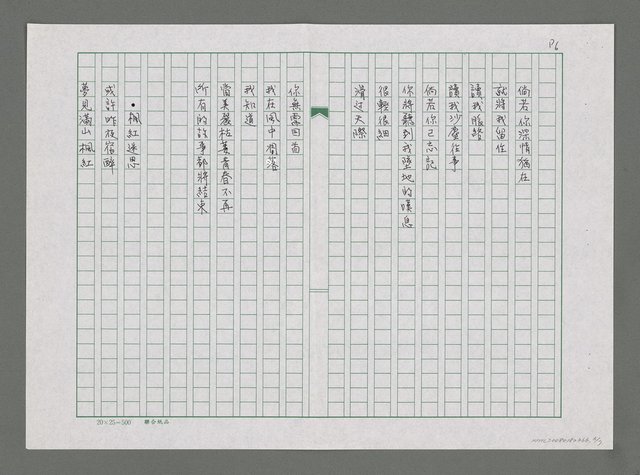 P6
倘若你深情猶在
就將我留住
讀我脈絡
讀我沙塵往事
倘若你已忘記
你將聽到我墜地的嘆息
很輕很細
滑过天際
你無需回首
我在風中凋落
我知道
當美麗枯萎青春不再
所有的故事都將結束
●楓紅迷思
或許昨夜宿醉
夢見滿山楓紅
20×25=500 聯合紙品